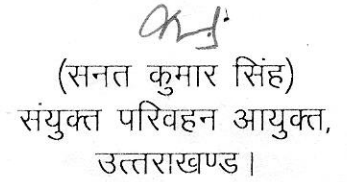 (सनत कुमार सिंह)
संयुक्त परिवहन आयुक्त,
उत्तराखण्ड।